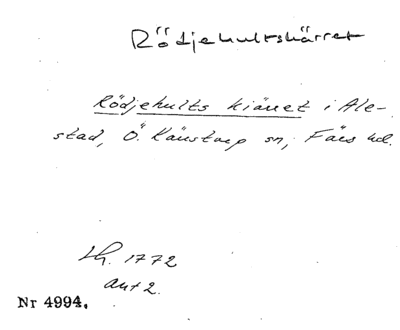 Rödjehultskärret
Rödjehults kiärret i Ale-
stad, Ö. Kärstorp sn, Färs hd.
Lh. 1772
ant 2.
Nr 4994.